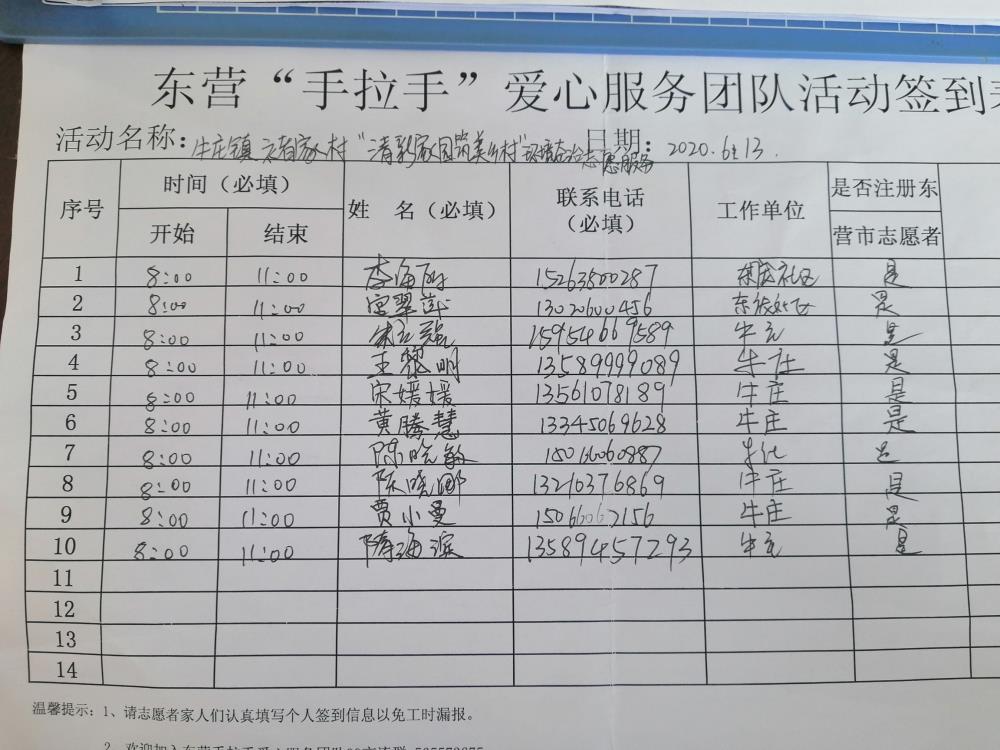 东营“手拉手”爱心服务团队活动签到
活动名称：牛庄镇 村“清 家园筑美乡村” 志愿服务 日期：2020.6.13.
序号 时间（必填） 姓 名（必填） 联系电话（必填） 工作单位 是否注册东营市志愿者
开始 结束
1 8:00 11:00 李海 15263800287 社区 是
2 8:00 11:00 翠莲 13020600456 东 社区 是
3 8:00 11:00 强 159954669589 牛庄 是
4 8:00 11:00 王黎明 13589999089 牛庄 是
5 8:00 11:00 宋媛媛 13561078189 牛庄 是
6 8:00 11:00 黄腾慧 13345069628 牛庄 是
7 8:00 11:00 陈晓敏 牛庄 是
8 8:00 11:00 陈晓娜 13210376869 牛庄 是
9 8:00 11:00 贾小曼 15066067156 牛庄 是
10 8:00 11:00 隋海滨 13589457293 牛庄 是
11
12
13
14
温馨提示：1、请志愿者家人们认真填写个人签到信息以免工时漏报。
2、欢迎加入东营手拉手爱心服务团队QQ交流群